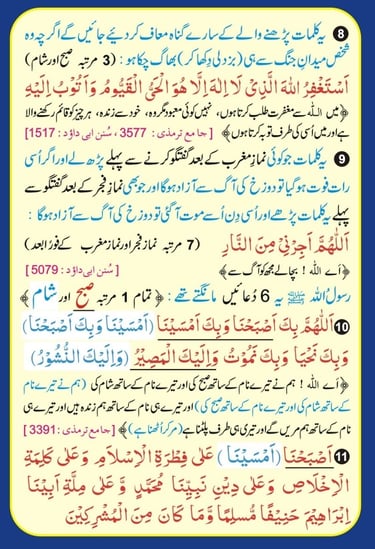 8 یہ کلمات پڑھنے والے کے سارے گناہ معاف کر دیئے جائیں گے اگرچہ وہ
شخص میدانِ جنگ سے ہی (بزدلی دِکھا کر) بھاگ چکا ہو : (3 مرتبہ صبح اور شام)
اَسْتَغْفِرُ اللهَ الَّذِيْ لَا اِلٰهَ اِلَّا هُوَ الْحَيُّ الْقَيُّوْمُ وَ اَتُوْبُ اِلَيْهِ
﴿میں اللہ سے مغفرت طلب کرتا ہوں، نہیں کوئی معبود مگر وہ، خود سے زندہ، ہر چیز کو قائم رکھنے والا
ہے اور میں اُسی کی طرف توبہ کرتا ہوں﴾ [جامع ترمذی : 3577 ، سُنن ابی داؤد : 1517]
9 یہ کلمات جو کوئی نمازِ مغرب کے بعد گفتگو کرنے سے پہلے پڑھ لے اور اگر اُسی
رات فوت ہو گیا تو دوزخ کی آگ سے آزاد ہوگا اور جو بھی نمازِ فجر کے بعد گفتگو سے
پہلے یہ کلمات پڑھے اور اُسی دِن اُسے موت آ گئی تو دوزخ کی آگ سے آزاد ہوگا :
اَللّٰهُمَّ اَجِرْنِيْ مِنَ النَّارِ (7 مرتبہ نمازِ فجر اور نمازِ مغرب کے فورًا بعد)
﴿اَے اللہ ! بچالے مجھ کو آگ سے﴾ [سُنن ابی داؤد : 5079]
رسولُ اللہ ﷺ یہ 6 دُعائیں مانگتے تھے : ﴿ تمام 1 مرتبہ صبح اور شام ﴾
10 اَللّٰهُمَّ بِكَ اَصْبَحْنَا وَبِكَ اَمْسَيْنَا (اَمْسَيْنَا وَبِكَ اَصْبَحْنَا)
وَبِكَ نَحْيَا وَبِكَ نَمُوْتُ وَاِلَيْكَ الْمَصِيْرُ (وَاِلَيْكَ النُّشُوْرُ)
﴿اَے اللہ ! ہم نے تیرے نام کے ساتھ صبح کی اور تیرے نام کے ساتھ شام کی (ہم نے تیرے نام
کے ساتھ شام کی اور تیرے نام کے ساتھ صبح کی) اور تیرے نام کے ساتھ ہم زندہ ہیں اور تیرے ہی
نام کے ساتھ ہم مریں گے اور تیری ہی طرف پلٹنا ہے (مر کر اُٹھنا ہے)﴾ [جامع ترمذی : 3391]
11 اَصْبَحْنَا (اَمْسَيْنَا) عَلٰى فِطْرَةِ الْاِسْلَامِ وَعَلٰى كَلِمَةِ
الْاِخْلَاصِ وَعَلٰى دِيْنِ نَبِيِّنَا مُحَمَّدٍ وَّ عَلٰى مِلَّةِ اَبِيْنَا
اِبْرَاهِيْمَ حَنِيْفًا مُّسْلِمًا وَّمَا كَانَ مِنَ الْمُشْرِكِيْنَ